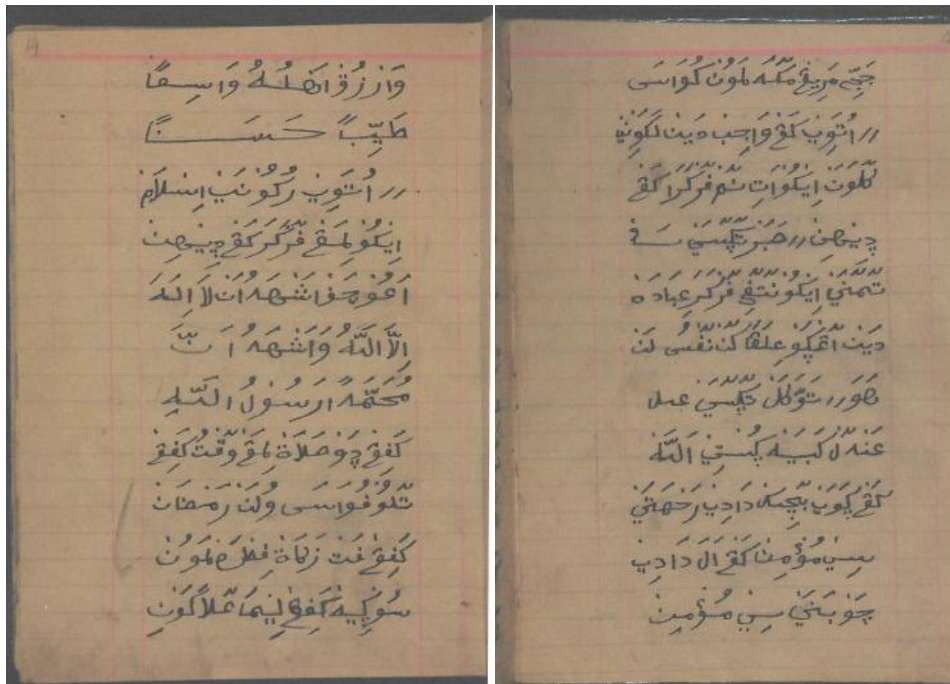 وَارْزُقْ اهلهُ وَاسِعًا
طَيِّبًا حَسَنًا
// اُتَوِي رُكُونَيْ اِسْلَامْ
ايكو ليمڠ فركر كڠ ديهين
اعوچف اشهد ان لا اله
اِلَّا اللّٰهُ وَاشْهَدُ اَنَّ
مُحَمَّدًا رَسُولُ اللّٰهِ
كفڠ دو صلاة ليمڠ وقت كفڠ
تلو فواسى وولن رمضان
كفڠ فت زكاة فطرة لمون
سوڮيه كفڠ ليما عملاكوني
حجي مريڠ مكه لمون كواسى
// اتوي كڠ واجب دين لكوني
كلون ايكو ات نم فركرا كڠ
ديهين // صبر تڮسي
تمني ايكو نتفي فركر عبادة
دين نفسو لن
هوى // توكل تڮسي عندل
عندل كبيه فستي الله
كڠ ڮوي بچيك دادي رحمتي
سيڠ مؤمن كڠ ال دادي
چوبني سيڠ مؤمن